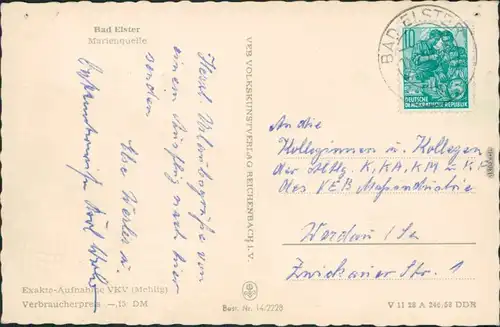 Bad Elster
Marienquelle
Herzl. Urlaubsgrüße von
einem Ausflug nach hier
senden
u.
VEB VOLKSKUNSTVERLAG REICHENBACH I. V.
BAD ELSTER
10
DEUTSCHE
DEMOKRATISCHE REPUBLIK
An die
Kolleginnen u. Kollegen
der Abtlg. K, KA, KM u. K
des VEB
Werdau / Sa
Zwickauer Str. 1
Exakte-Aufnahme VKV (Mehlig)
Verbraucherpreis —,15 DM
Best. Nr. 14/2228
V 11 28 A 246/58 DDR